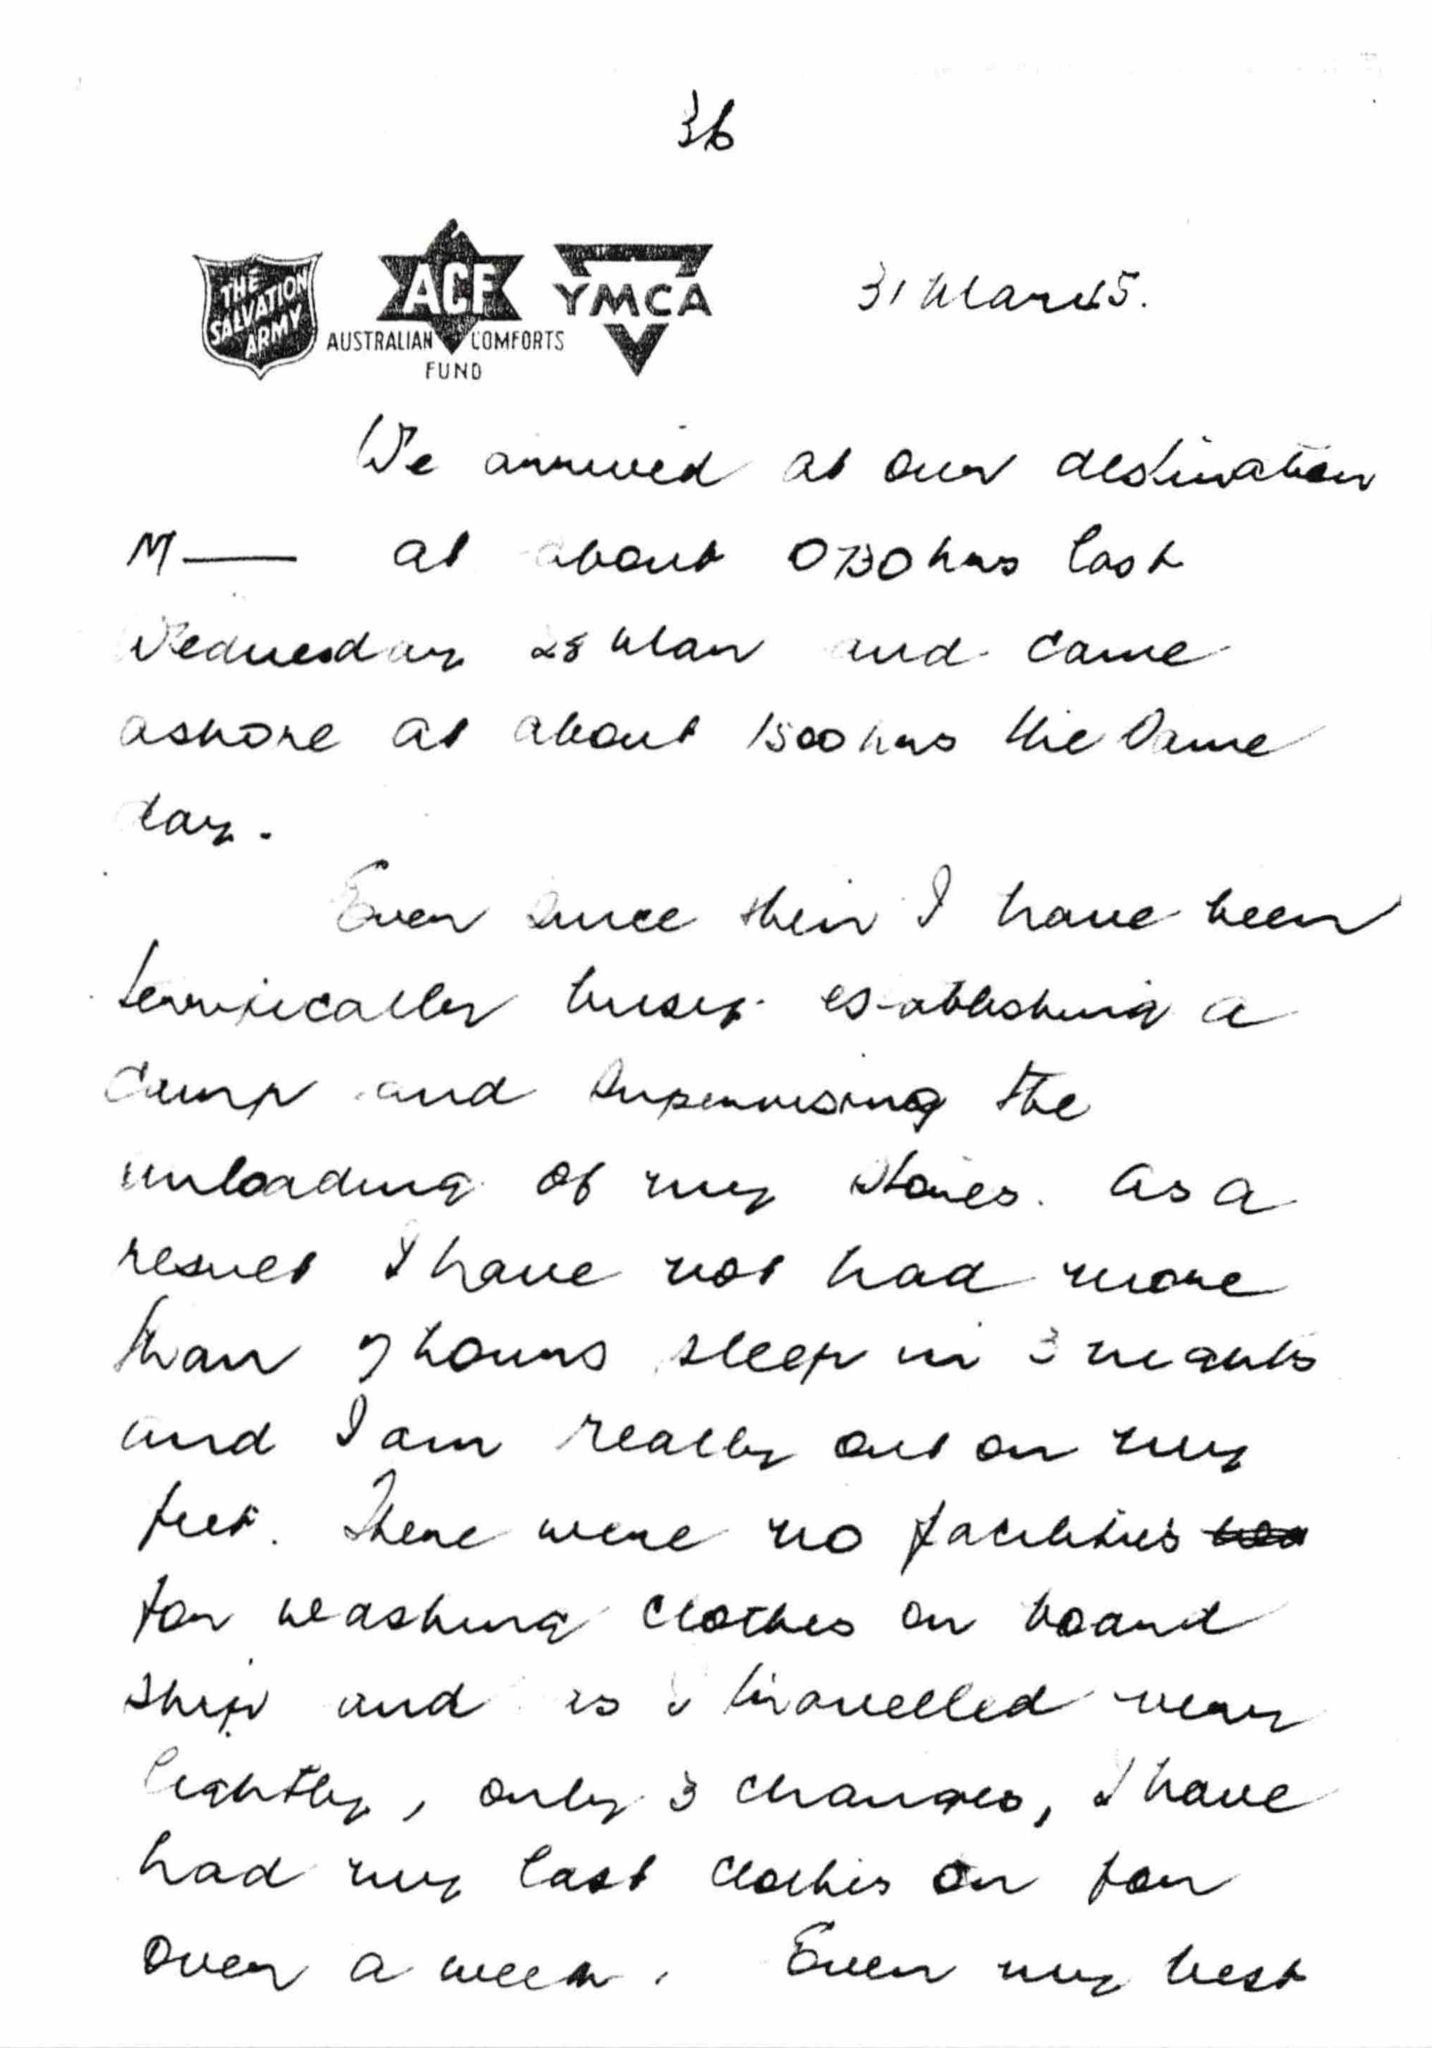 36
THE
SALVATION
ARMY
ACF
AUSTRALIAN COMFORTS
FUND
YMCA
31 Mar 45.
We arrived at our destination
M— at about 0730 hrs last
Wednesday 28 Mar and came
ashore at about 1500 hrs the same
day.
Ever since then I have been
terrifically busy establishing a
camp and supervising the
unloading of my stores. As a
result I have not had more
than 7 hours sleep in 3 nights
and I am really out on my
feet. There were no facilities
for washing clothes on board
ship and as I travelled very
lightly, only 3 changes, I have
had my last clothes on for
over a week. Even my best